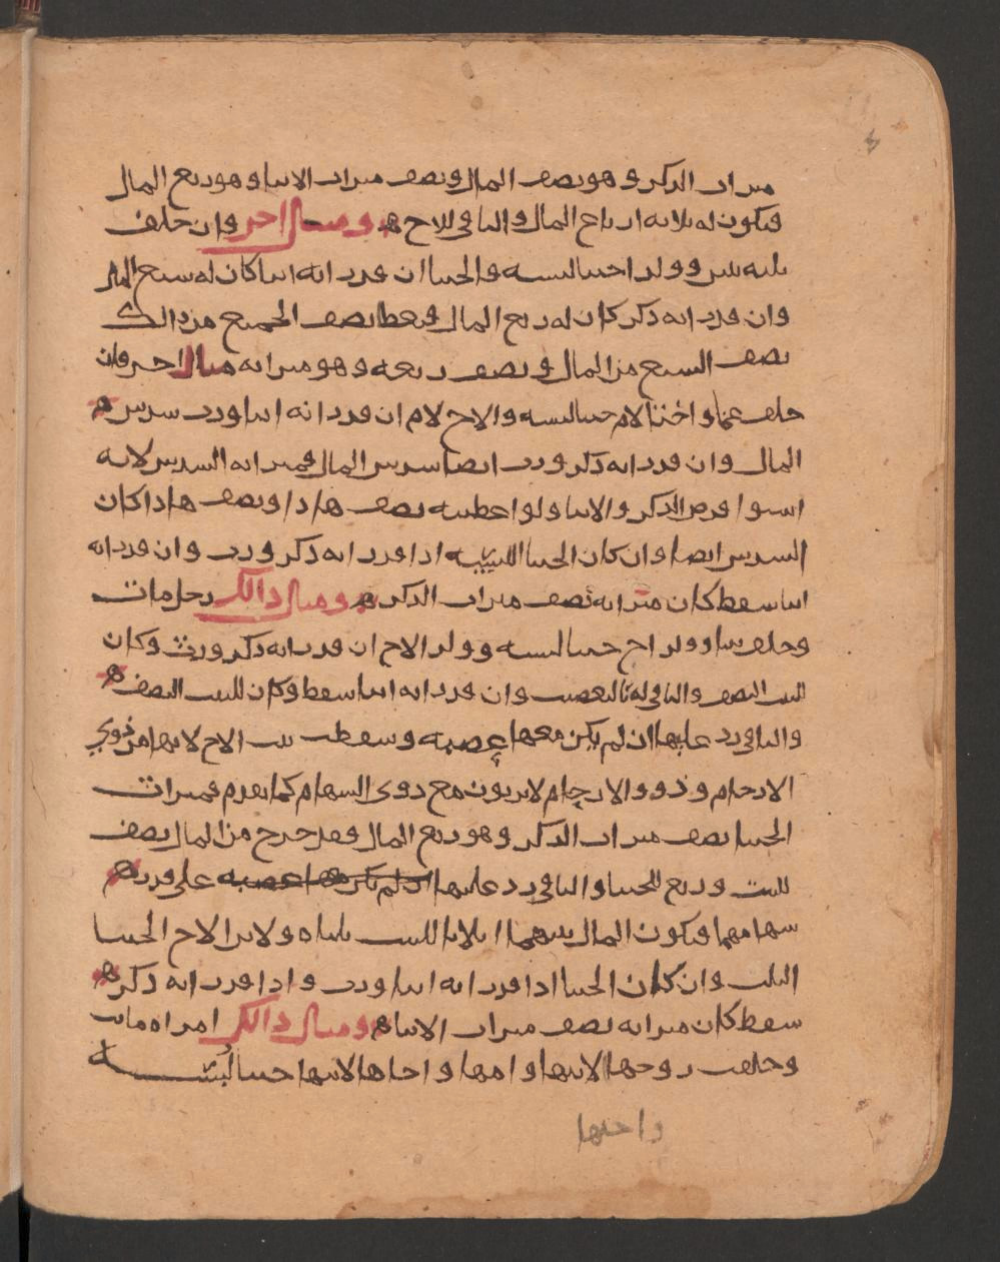 ميراث الذكر وهو نصف المال ونصف ميراث الانثا وهو ربع المال
فيكون له ثلاثة ارباع المال والباقي للاخ ومثال اخر وان خلف
ثلثه بنين وولدا خنثا لبسه والخنثا ان قدر انه انثا كان له سبع المال
وان قدر انه ذكر كان له ربع المال فيعطا نصف الجميع من ذالك
نصف السبع من المال ونصف ربعه وهو ميراثه مثال اخر وان
خلف عما واختا لام خنثا لبسه والاخ لام ان قدر انه انثا ورث سدس
المال وان قدر انه ذكر ورث ايضا سدس المال فميراثه السدس لانه
استوا فرض الذكر والانثا ولو اعطيته نصف هاذا ونصف هاذا كان
السدس ايضا وان كان الخنثا اللبسه اذا قدر انه ذكر ورث وان قدر انه
انثا سقط كان ميراثه نصف ميراث الذكر ومثال ذالك رجل مات
وخلف بنتا وولد اخ خنثا لبسه وولد الاخ ان قدر انه ذكر ورث وكان
للبنت النصف والباقي له بالتعصيب وان قدر انه انثا سقط وكان للبنت النصف
والباقي رد عليها ان لم يكن معها عصبه وسقطت بنت الاخ لانها من ذوي
الارحام وذووا الارحام لا يرثون مع ذوي السهام كما تقدم فميراث
الخنثا نصف ميراث الذكر وهو ربع المال فقد خرج من المال نصف
للبنت وربع للخنثا والباقي رد عليهما ان لم يكن معها عصبه على قدر
سهامهما فيكون المال بينهما اثلاثا للبنت ثلثاه ولابن الاخ الخنثا
الثلث وان كان الخنثا اذا قدر انه انثا ورث واذا قدر انه ذكر
سقط كان ميراثه نصف ميراث الانثا ومثال ذالك امراه ماتت
وخلفت زوجها لابيها وامها واخاها لابيها خنثا لبسه
واختها